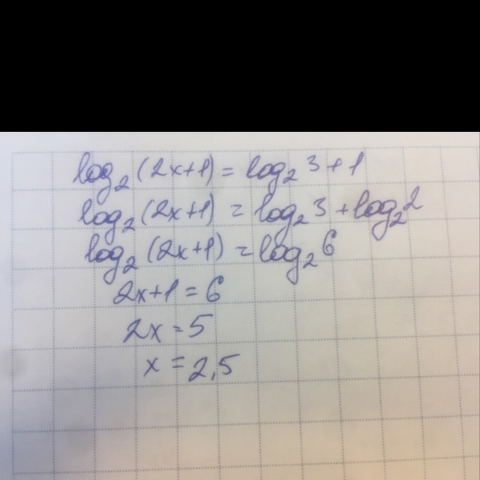 log₂(2x+1) = log₂3+1
log₂(2x+1) = log₂3+log₂2
log₂(2x+1) = log₂6
2x+1=6
2x=5
x=2,5